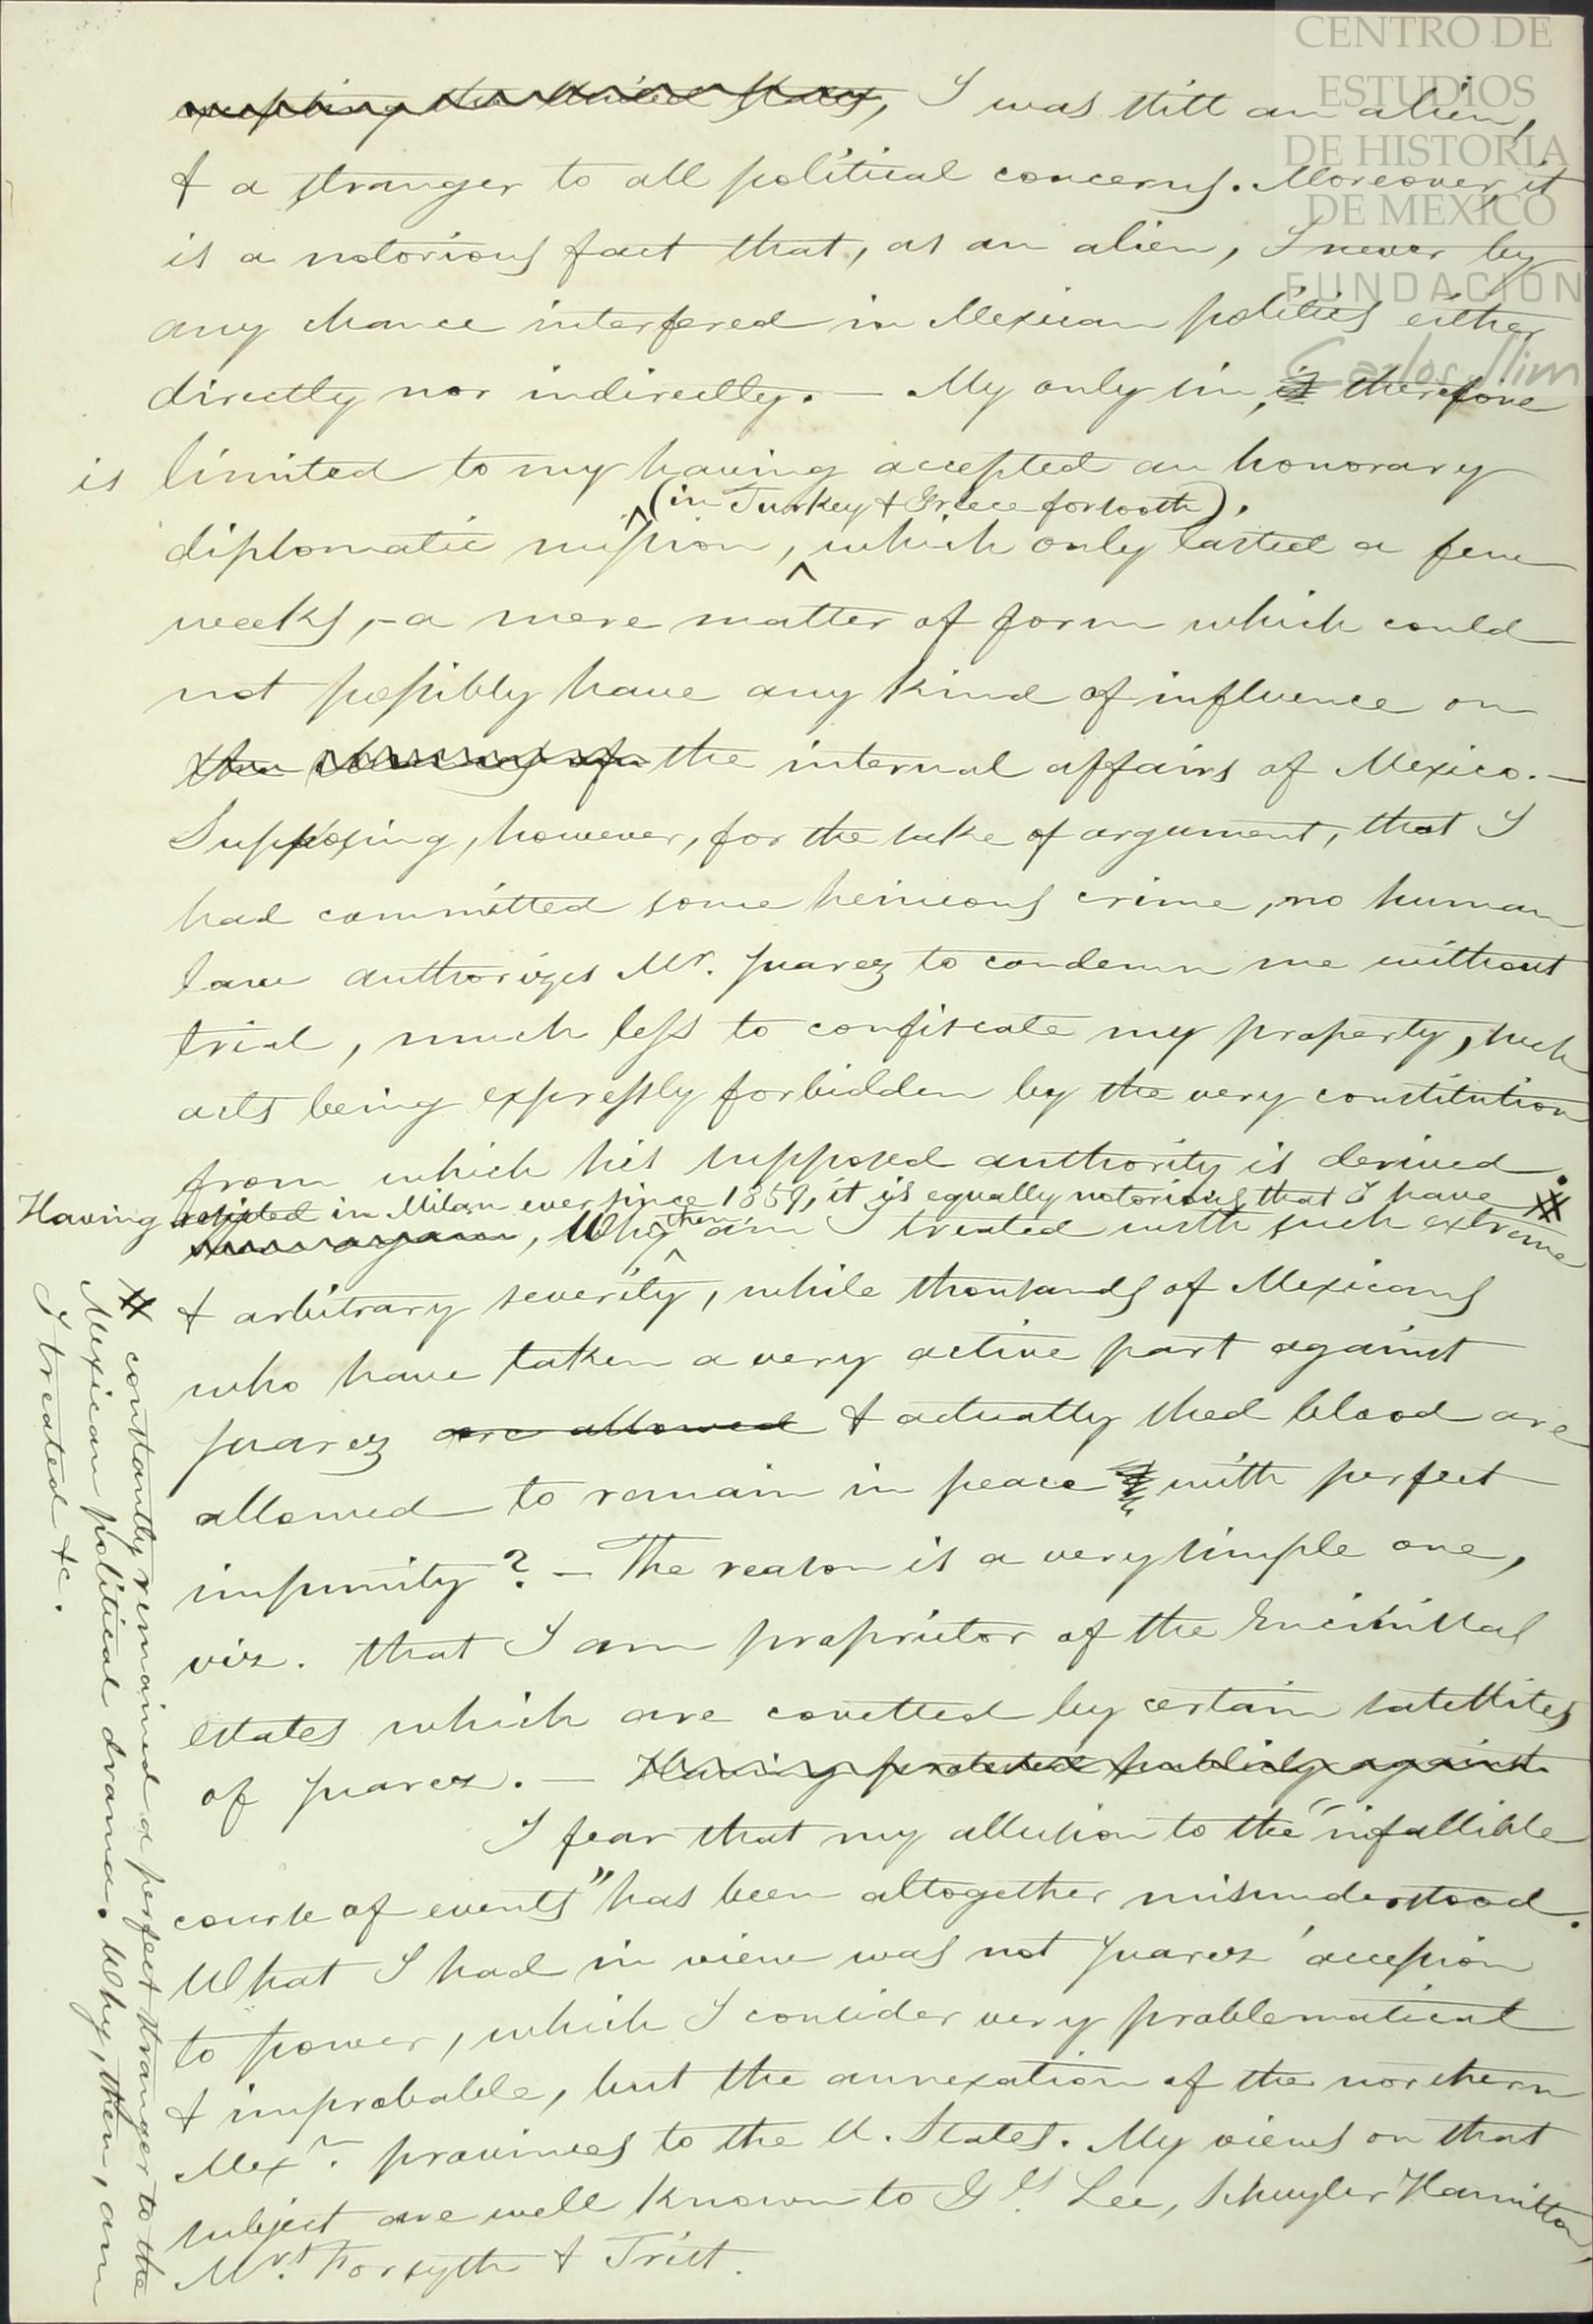 CENTRO DE
ESTUDIOS
DE HISTORIA
DE MEXICO
FUNDACIÓN
Carlos Slim
excepting the United States, I was still an alien,
& a stranger to all political concerns. Moreover, it
is a notorious fact that, as an alien, I never by
any chance interfered in Mexican politics either
directly nor indirectly. — My only sin, is therefore
is limited to my having accepted an honorary
(in Turkey & Greece forsooth),
diplomatic mission, which only lasted a few
weeks, - a mere matter of form which could
not possibly have any kind of influence on
the internal affairs of Mexico. —
Supposing, however, for the sake of argument, that I
had committed some heinious crime, no human
law authorizes Mr. Juarez to condemn me without
trial, much less to confiscate my property, such
acts being expressly forbidden by the very constitution
from which his supposed authority is derived.
Having resided in Milan ever since 1859, it is equally notorious that I have #
Why then am I treated with such extreme
& arbitrary severity, while thousands of Mexicans
who have taken a very active part against
Juarez are allowed & actually shed blood are
allowed to remain in peace with perfect
impunity? — The reason is a very simple one,
viz. that I am proprietor of the Encinillas
estates which are covetted by certain satellites
of Juarez. — Having protested publicly against
I fear that my allusion to the "infallible
course of events" has been altogether misunderstood.
What I had in view was not Juarez' accession
to power, which I consider very problematical
& improbable, but the annexation of the northern
Mexn. provinces to the U. States. My views on that
subject are well known to Gls. Lee, Schuyler Hamilton,
Mrs. Forsyth & Trist.
# constantly remained a perfect stranger to the
Mexican political drama. Why, then, am
I treated &c.